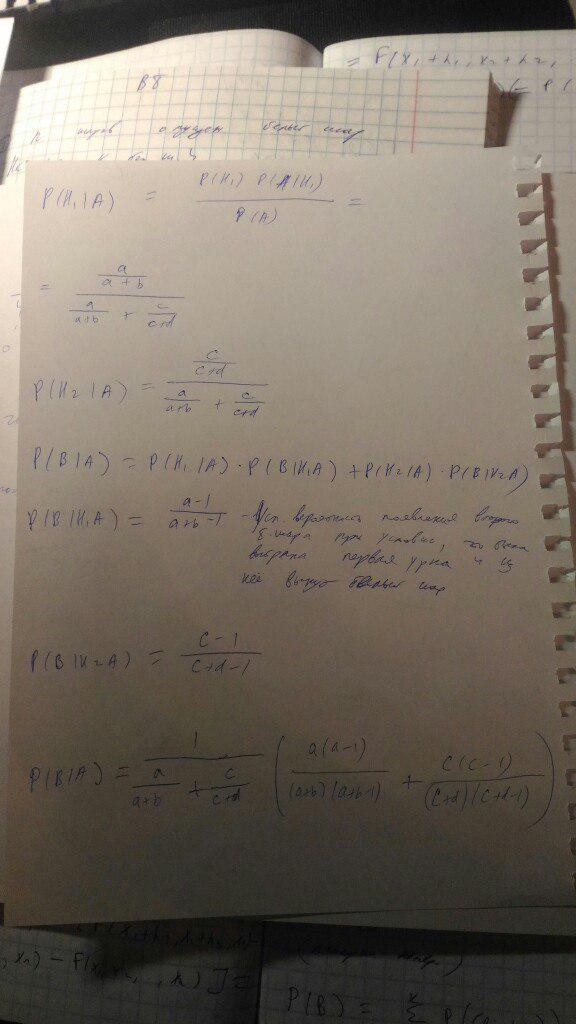 = F(x₁ + h₁, x₂ + h₂,
B8
шаров опущен белый шар
P(H₁|A) = \frac{P(H₁) P(A|H₁)}{P(A)} =
= \frac{\frac{a}{a+b}}{\frac{a}{a+b} + \frac{c}{c+d}}
P(H₂|A) = \frac{\frac{c}{c+d}}{\frac{a}{a+b} + \frac{c}{c+d}}
P(B|A) = P(H₁|A) · P(B|H₁A) + P(H₂|A) · P(B|H₂A)
P(B|H₁A) = \frac{a-1}{a+b-1} - Усл. вероятность появления второго
б. шара при условии, что была
выбрана первая урна и из
неё вынут белый шар
P(B|H₂A) = \frac{c-1}{c+d-1}
P(B|A) = \frac{1}{\frac{a}{a+b} + \frac{c}{c+d}} \left( \frac{a(a-1)}{(a+b)(a+b-1)} + \frac{c(c-1)}{(c+d)(c+d-1)} \right)
xₙ) - F(x₁, x₂, , xₙ) ] =
P(B) =